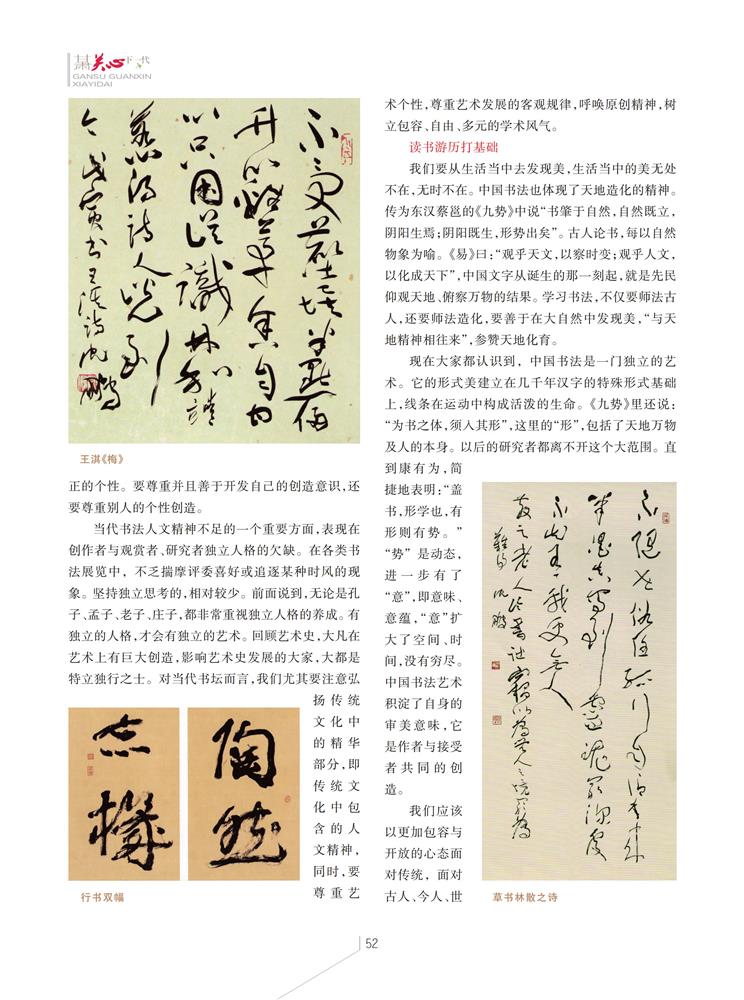 甘肃关心下一代
GANSU GUANXIN
XIAYIDAI
不受塵埃半點侵
竹籬茅舍自甘
心只因误識林和靖
惹得詩人说到
今戊寅书王淇詩沈鹏
王淇《梅》
正的个性。要尊重并且善于开发自己的创造意识,还
要尊重别人的个性创造。
当代书法人文精神不足的一个重要方面,表现在
创作者与观赏者、研究者独立人格的欠缺。在各类书
法展览中，不乏揣摩评委喜好或追逐某种时风的现
象。坚持独立思考的,相对较少。前面说到,无论是孔
子、孟子、老子、庄子,都非常重视独立人格的养成。有
独立的人格,才会有独立的艺术。回顾艺术史,大凡在
艺术上有巨大创造,影响艺术史发展的大家,大都是
特立独行之士。对当代书坛而言,我们尤其要注意弘
扬传统
文化中
的精华
部分,即
传统文
化中包
含的人
文精神,
同时,要
尊重艺
陶然
忘機
行书双幅
术个性,尊重艺术发展的客观规律,呼唤原创精神,树
立包容、自由、多元的学术风气。
读书游历打基础
我们要从生活当中去发现美,生活当中的美无处
不在,无时不在。中国书法也体现了天地造化的精神。
传为东汉蔡邕的《九势》中说“书肇于自然,自然既立,
阴阳生焉;阴阳既生,形势出矣”。古人论书,每以自然
物象为喻。《易》曰:“观乎天文,以察时变;观乎人文,
以化成天下”,中国文字从诞生的那一刻起,就是先民
仰观天地、俯察万物的结果。学习书法,不仅要师法古
人,还要师法造化,要善于在大自然中发现美,“与天
地精神相往来”,参赞天地化育。
现在大家都认识到，中国书法是一门独立的艺
术。它的形式美建立在几千年汉字的特殊形式基础
上,线条在运动中构成活泼的生命。《九势》里还说:
“为书之体,须入其形”,这里的“形”,包括了天地万物
及人的本身。以后的研究者都离不开这个大范围。直
到康有为,简
捷地表明:“盖
书,形学也,有
形则有势。”
“势”是动态,
进一步有了
“意”,即意味、
意蕴,“意”扩
大了空间、时
间,没有穷尽。
中国书法艺术
积淀了自身的
审美意味,它
是作者与接受
者共同的创
造。
我们应该
以更加包容与
开放的心态面
对传统，面对
古人、今人、世
草书林散之诗
52